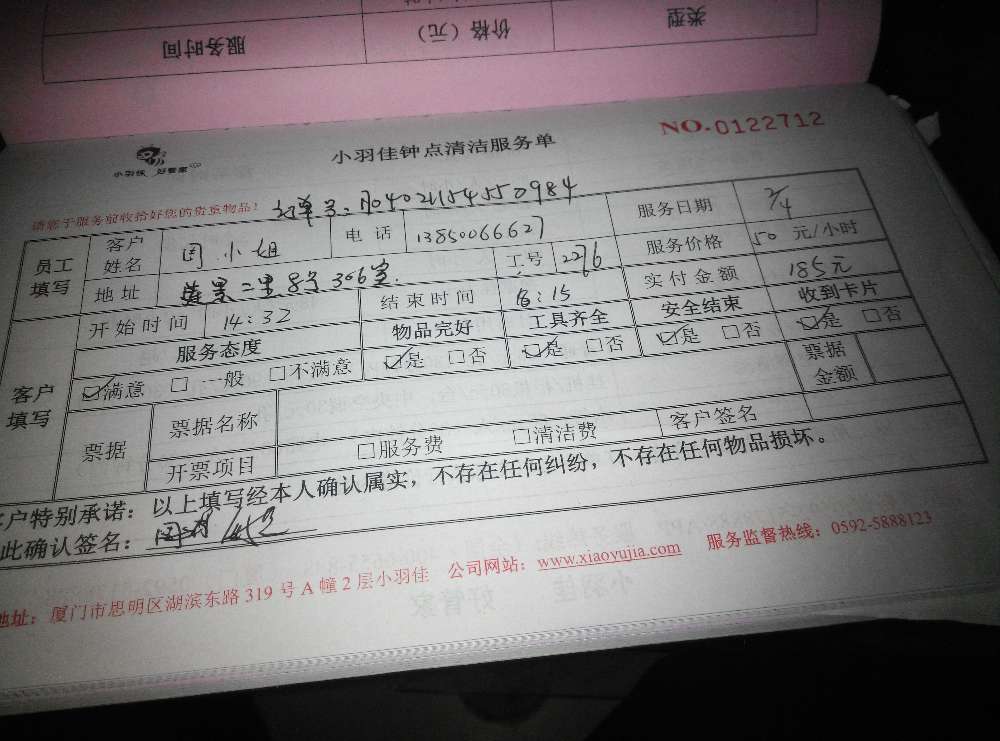 类型 价格（元） 服务时间
小羽佳 好管家
小羽佳钟点清洁服务单
NO.0122712
请您于服务前收拾好您的贵重物品！
订单号：A0402115455 0984
员工填写 客户姓名 周小姐 电话 13850066627 服务日期 2/4
地址 莲景二里8号306室. 工号 2276 服务价格 50 元/小时
客户填写 开始时间 14:32 结束时间 18:15 实付金额 185元
服务态度 物品完好 工具齐全 安全结束 收到卡片
☑满意 □一般 □不满意 ☑是 □否 ☑是 □否 ☑是 □否 ☑是 □否
票据 票据名称 票据金额
开票项目 □服务费 □清洁费 客户签名
客户特别承诺：以上填写经本人确认属实，不存在任何纠纷，不存在任何物品损坏。
此确认签名：
地址：厦门市思明区湖滨东路319号A幢2层小羽佳 公司网站：www.xiaoyujia.com 服务监督热线：0592-5888123